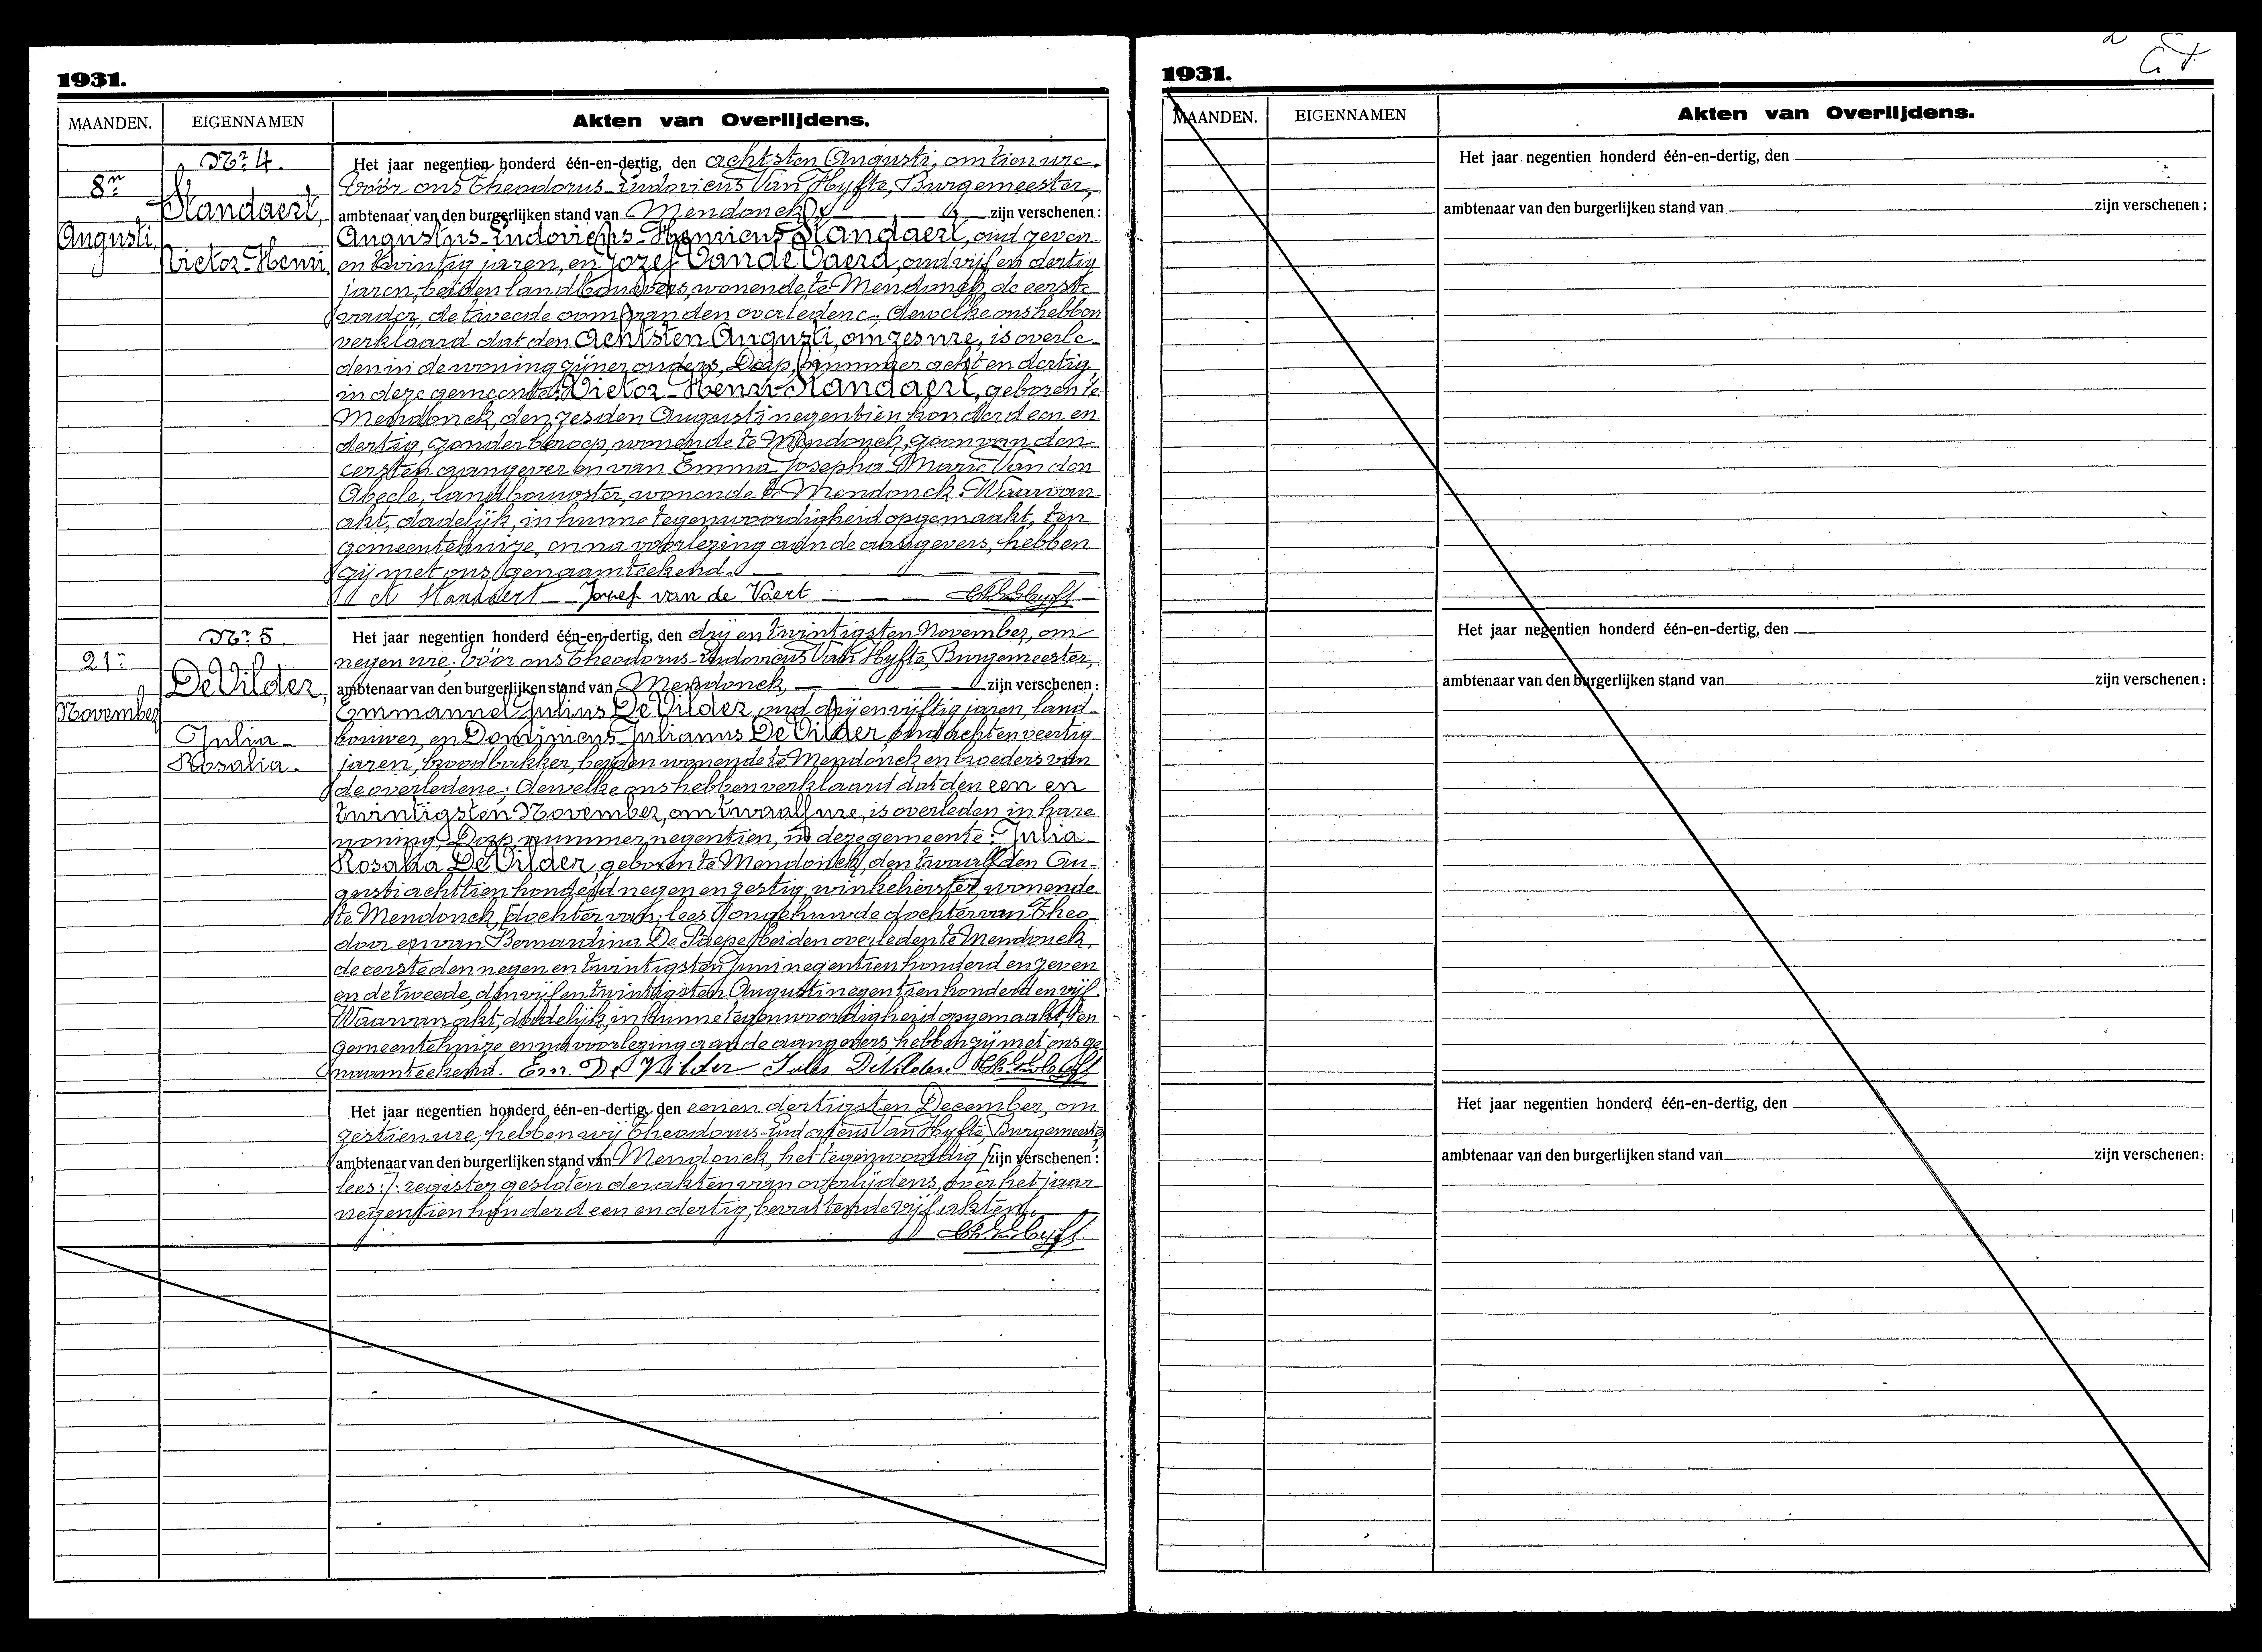 1931.
MAANDEN.
EIGENNAMEN
Akten van Overlijdens.
8n
Augusti.
Nr 4.
Standaert,
Victor-Henri
Het jaar negentien honderd één-en-dertig, den achtsten Augusti, om tien ure.
Vóór ons Theodorus-Ludovicus Van Hyfte, Burgemeester,
ambtenaar van den burgerlijken stand van Mendonck, zijn verschenen:
Augustus-Ludovicus-Henricus Standaert, oud zeven
en twintig jaren, en Jozef Van de Vaerd, oud vijf en dertig
jaren, beiden landbouwers, wonende te Mendonck, de eerste
vader, de tweede oom van den overledene; dewelke ons hebben
verklaard dat den achtsten Augusti, om zes ure, is overle-
den in de woning zijner ouders, Dorp, nummer acht en dertig,
in deze gemeente: Victor-Henri Standaert, geboren te
Mendonck, den zesden Augusti negentien honderd een en
dertig, zonder beroep, wonende te Mendonck, zoon van den
eersten aangever en van Emma-Josepha-Marie Van den
Abeele, landbouwster, wonende te Mendonck. Waarvan
akt, dadelijk, in hunne tegenwoordigheid opgemaakt, ten
gemeentehuize, en na voorlezing aan de aangevers, hebben
zij met ons genaamteekend.
A Standaert Jozef van de Vaert Th. Van Hyfte
21n
November
Nr 5.
De Vilder,
Julia-
Rosalia.
Het jaar negentien honderd één-en-dertig, den drij en twintigsten November, om
negen ure. Vóór ons Theodorus-Ludovicus Van Hyfte, Burgemeester,
ambtenaar van den burgerlijken stand van Mendonck, zijn verschenen:
Emmanuel-Julius De Vilder, oud drij en vijftig jaren, land-
bouwer, en Dominicus-Julianus De Vilder, oud acht en veertig
jaren, broodbakker, beiden wonende te Mendonck en broeders van
de overledene; dewelke ons hebben verklaard dat den een en
twintigsten November, om twaalf ure, is overleden in hare
woning, Dorp, nummer negentien, in deze gemeente: Julia-
Rosalia De Vilder, geboren te Mendonck, den twaalfden Au-
gusti achttien honderd negen en zestig, winkelierster, wonende
te Mendonck, [dochter van: lees:/: ongehuwde dochter van Theo-
door en van Bernardina De Paepe, beiden overleden te Mendonck,
de eerste den negen en twintigsten Juni negentien honderd en zeven
en de tweede, den vijf en twintigsten Augusti negentien honderd en vijf.
Waarvan akt, dadelijk, in hunne tegenwoordigheid opgemaakt, ten
gemeentehuize, en na voorlezing aan de aangevers, hebben zij met ons ge-
naamteekend. Em. De Vilder Jules De Vilder. Th. Van Hyfte
Het jaar negentien honderd één-en-dertig, den een en dertigsten December, om
zestien ure, hebben wij Theodorus-Ludovicus Van Hyfte, Burgemeester
ambtenaar van den burgerlijken stand van Mendonck, het tegenwoordig [zijn verschenen:
lees:/: register gesloten der akten van overlijdens, over het jaar
negentien honderd een en dertig, bevattende vijf akten.
Th. Van Hyfte
1931.
MAANDEN.
EIGENNAMEN
Akten van Overlijdens.
Het jaar negentien honderd één-en-dertig, den
ambtenaar van den burgerlijken stand van zijn verschenen;
Het jaar negentien honderd één-en-dertig, den
ambtenaar van den burgerlijken stand van zijn verschenen:
Het jaar negentien honderd één-en-dertig, den
ambtenaar van den burgerlijken stand van zijn verschenen: